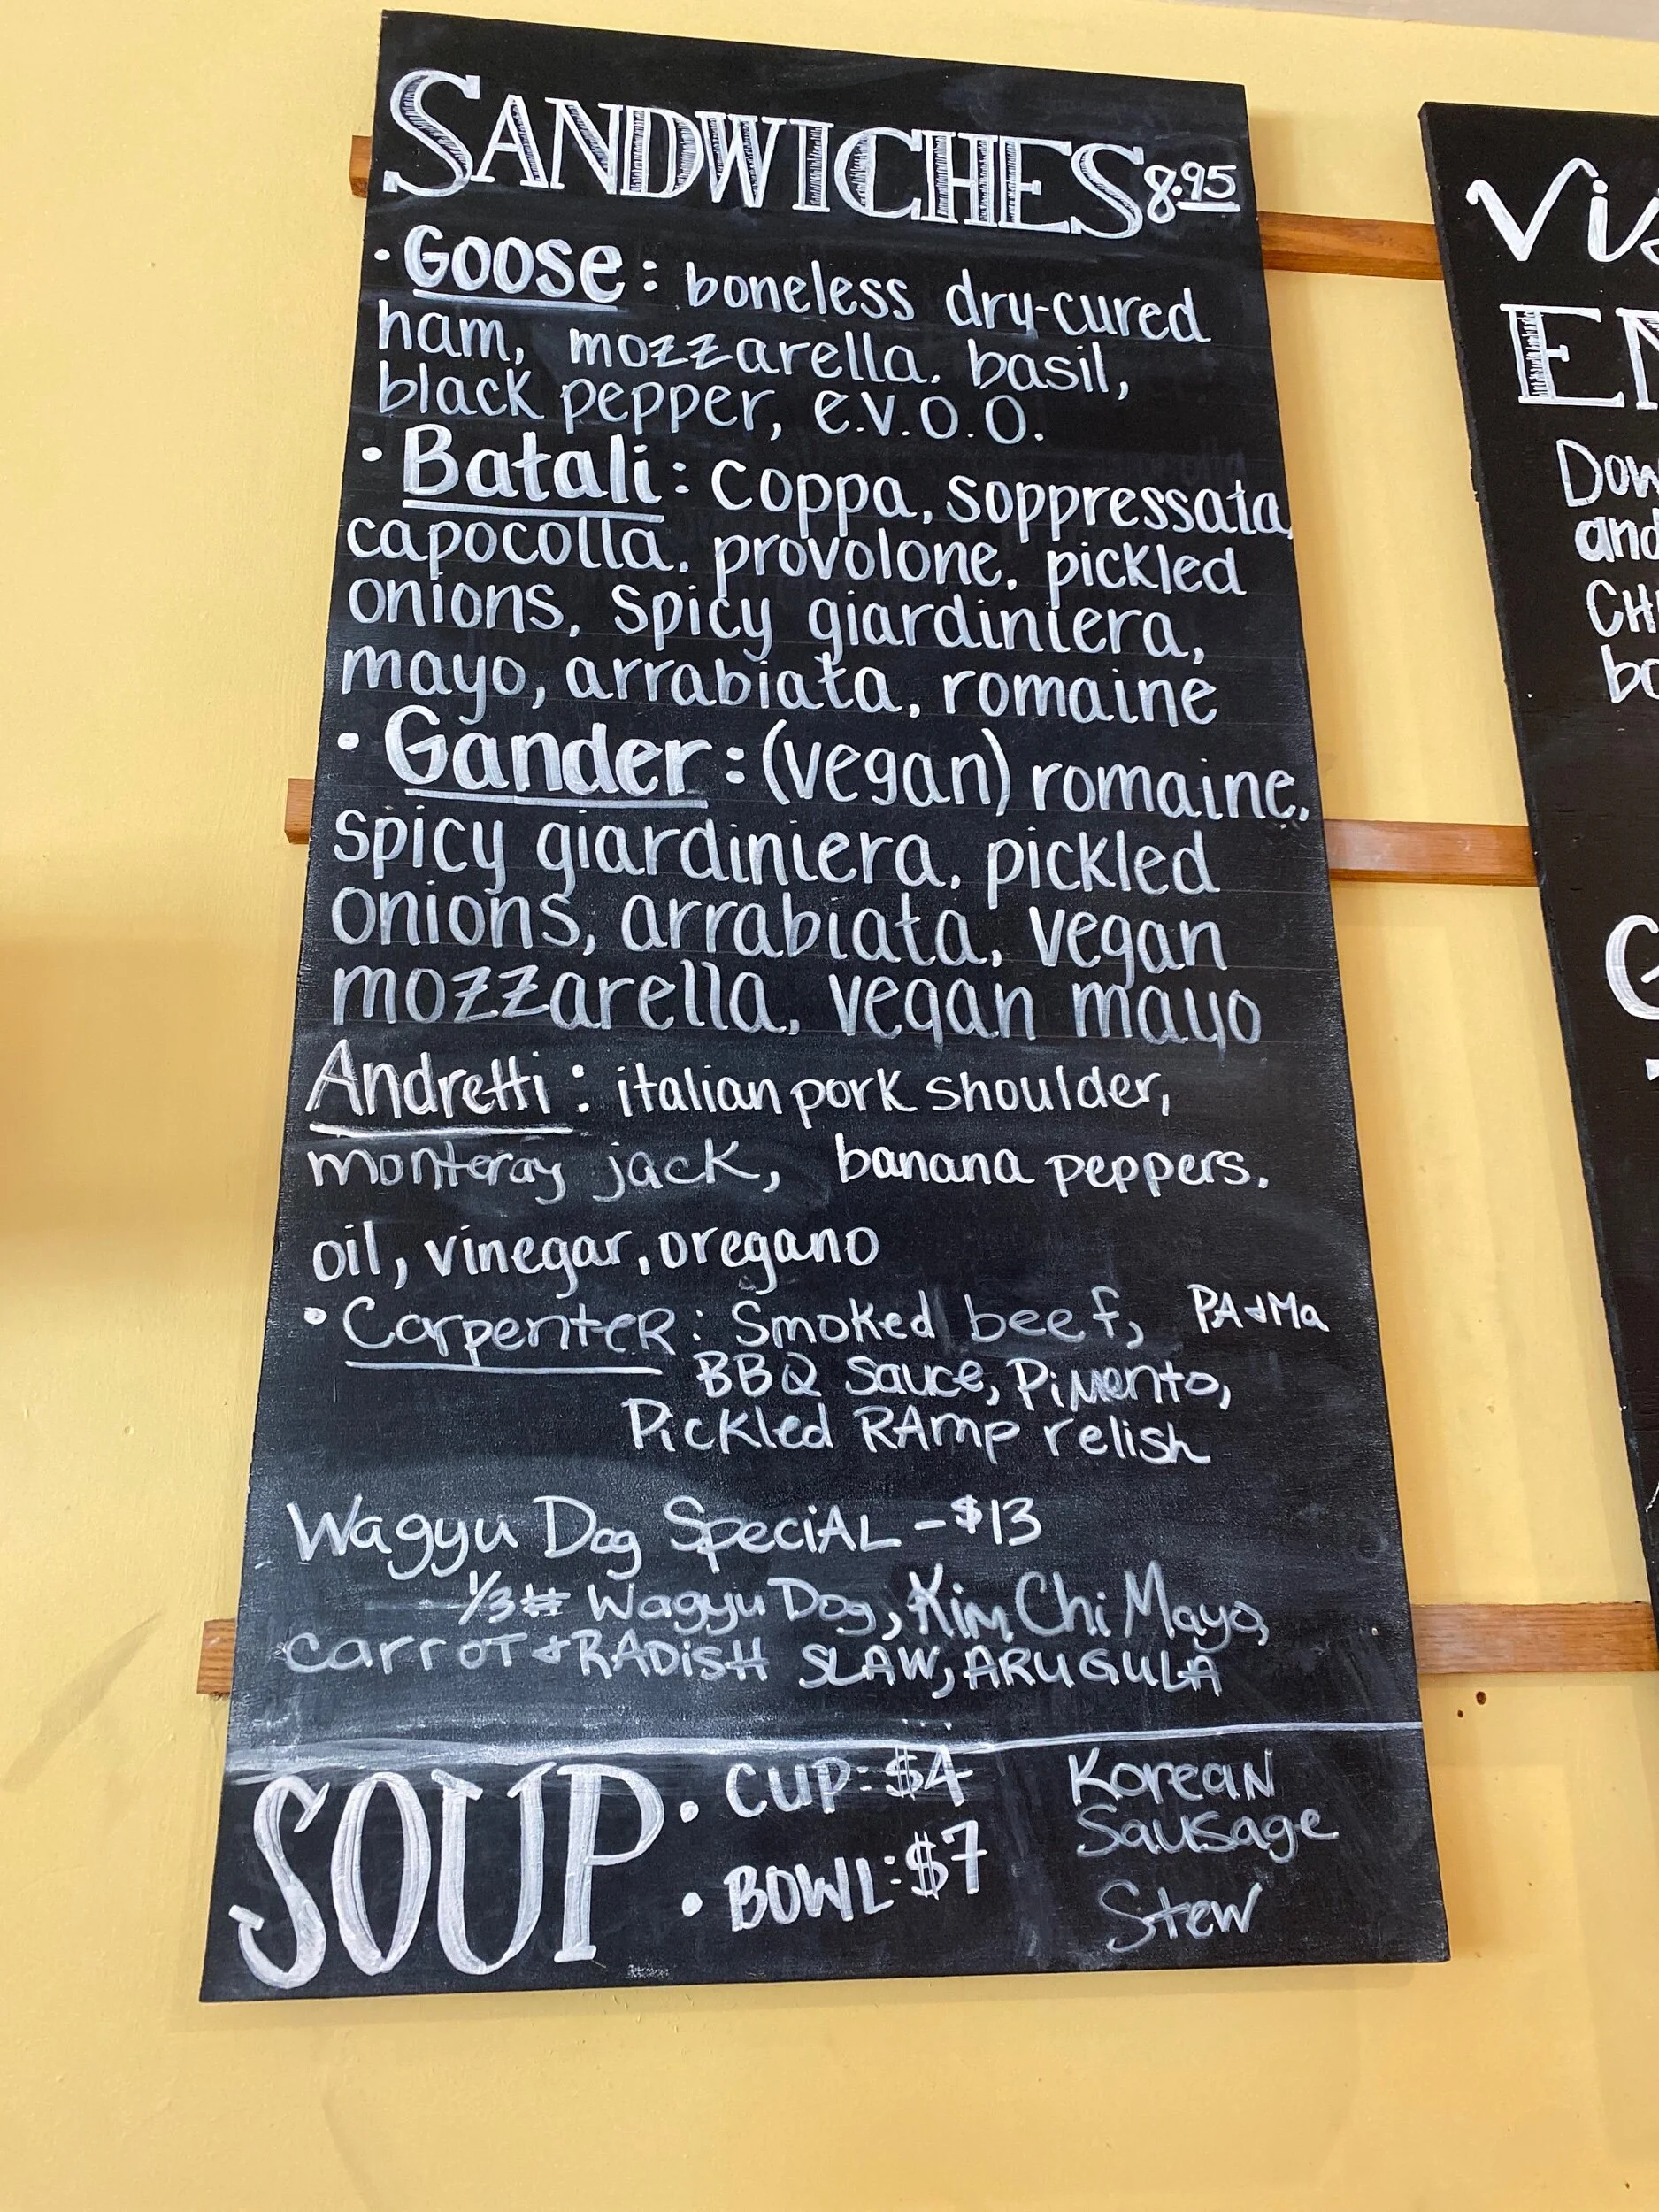 SANDWICHES 8.95
• Goose: boneless dry-cured
ham, mozzarella, basil,
black pepper, e.v.o.o.
• Batali: coppa, soppressata,
capocolla, provolone, pickled
onions, spicy giardiniera,
mayo, arrabiata, romaine
• Gander: (vegan) romaine,
spicy giardiniera, pickled
onions, arrabiata, vegan
mozzarella, vegan mayo
Andretti: italian pork shoulder,
monteray jack, banana peppers.
oil, vinegar, oregano
• CarpenteR: Smoked beef, PA & Ma
BBQ Sauce, Pimento,
Pickled RAmp relish
Wagyu Dog SpeciAL - $13
1/3# Wagyu Dog, Kim Chi Mayo,
carroT & RADiSH SLAW, ARUGULA
SOUP • CUP: $4
• BOWL: $7
KoreaN
Sausage
Stew
Vis
EN
Dow
and
CH
bo
G